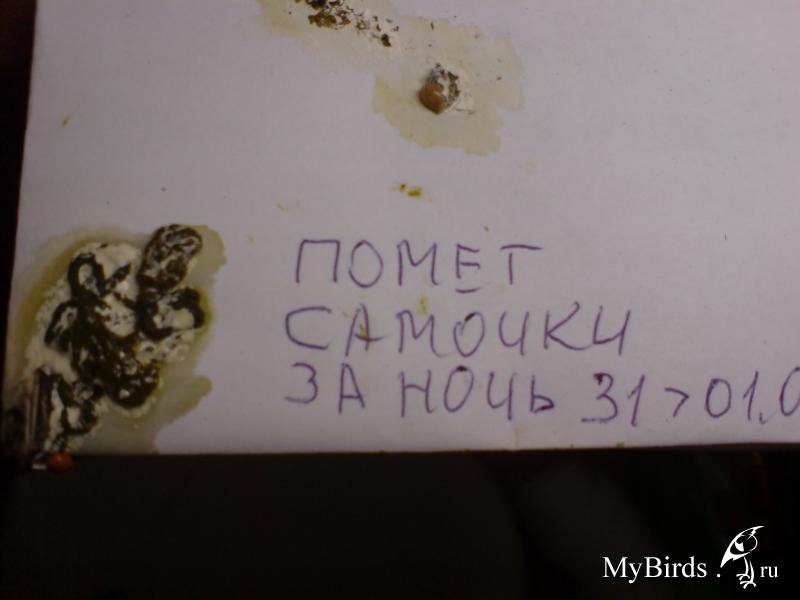 ПОМЕТ
САМОЧКИ
ЗА НОЧЬ 31>01.0
MyBirds.ru